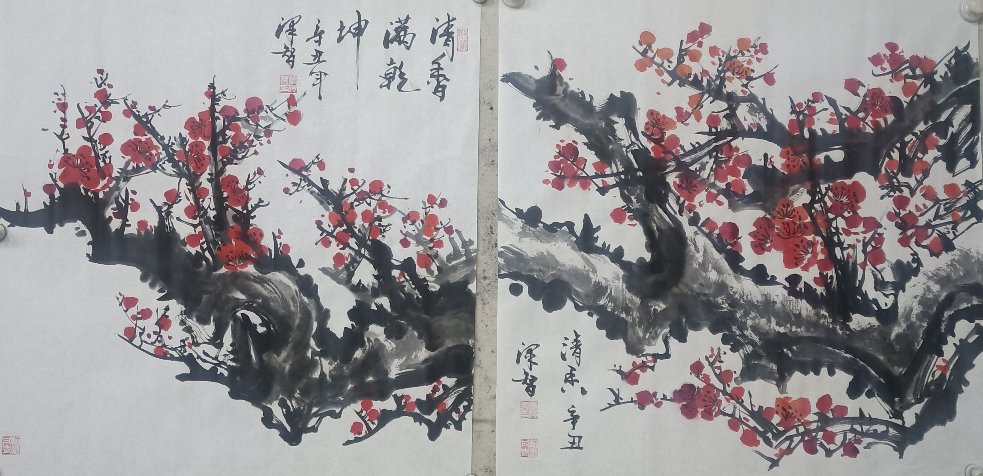 清香
满乾
坤
辛丑年
泽智
清香
辛丑
泽智